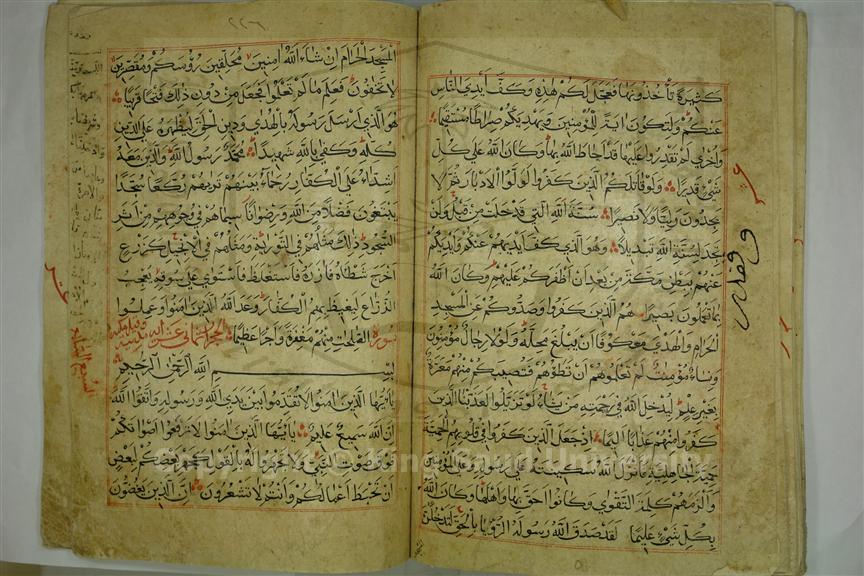 كثيرة تأخذونها فعجل لكم هذه وكف أيدي الناس
عنكم ولتكون آية للمؤمنين ويهديكم صراطا مستقيما
وأخرى لم تقدروا عليها قد أحاط الله بها وكان الله على كل
شيء قديرا ولو قاتلكم الذين كفروا لولوا الأدبار ثم لا
يجدون وليا ولا نصيرا سنة الله التي قد خلت من قبل ولن
تجد لسنة الله تبديلا وهو الذي كف أيديهم عنكم وأيديكم
عنهم ببطن مكة من بعد أن أظفركم عليهم وكان الله
بما تعملون بصيرا هم الذين كفروا وصدوكم عن المسجد
الحرام والهدي معكوفا أن يبلغ محله ولولا رجال مؤمنون
ونساء مؤمنات لم تعلموهم أن تطؤهم فتصيبكم منهم معرة
بغير علم ليدخل الله في رحمته من يشاء لو تزيلوا لعذبنا الذين
كفروا منهم عذابا أليما إذ جعل الذين كفروا في قلوبهم الحمية
حمية الجاهلية فأنزل الله سكينته على رسوله وعلى المؤمنين
وألزمهم كلمة التقوى وكانوا أحق بها وأهلها وكان الله
بكل شيء عليما لقد صدق الله رسوله الرؤيا بالحق لتدخلن
٢٢٦
المسجد الحرام إن شاء الله آمنين محلقين رؤسكم ومقصرين
لا تخافون فعلم ما لم تعلموا فجعل من دون ذلك فتحا قريبا
هو الذي أرسل رسوله بالهدى ودين الحق ليظهره على الدين
كله وكفى بالله شهيدا محمد رسول الله والذين معه
أشداء على الكفار رحماء بينهم تريهم ركعا سجدا
يبتغون فضلا من الله ورضوانا سيماهم في وجوههم من أثر
السجود ذلك مثلهم في التورية ومثلهم في الإنجيل كزرع
أخرج شطأه فآزره فاستغلظ فاستوى على سوقه يعجب
الزراع ليغيظ بهم الكفار وعد الله الذين آمنوا وعملوا
الصالحات منهم مغفرة وأجرا عظيما سورة الحجرات ثماني عشر آية مدنية
بسم الله الرحمن الرحيم
يا أيها الذين آمنوا لا تقدموا بين يدي الله ورسوله واتقوا الله
إن الله سميع عليم يا أيها الذين آمنوا لا ترفعوا أصواتكم
فوق صوت النبي ولا تجهروا له بالقول كجهر بعضكم لبعض
أن تحبط أعمالكم وأنتم لا تشعرون إن الذين يغضون
Copyright © King Saud University